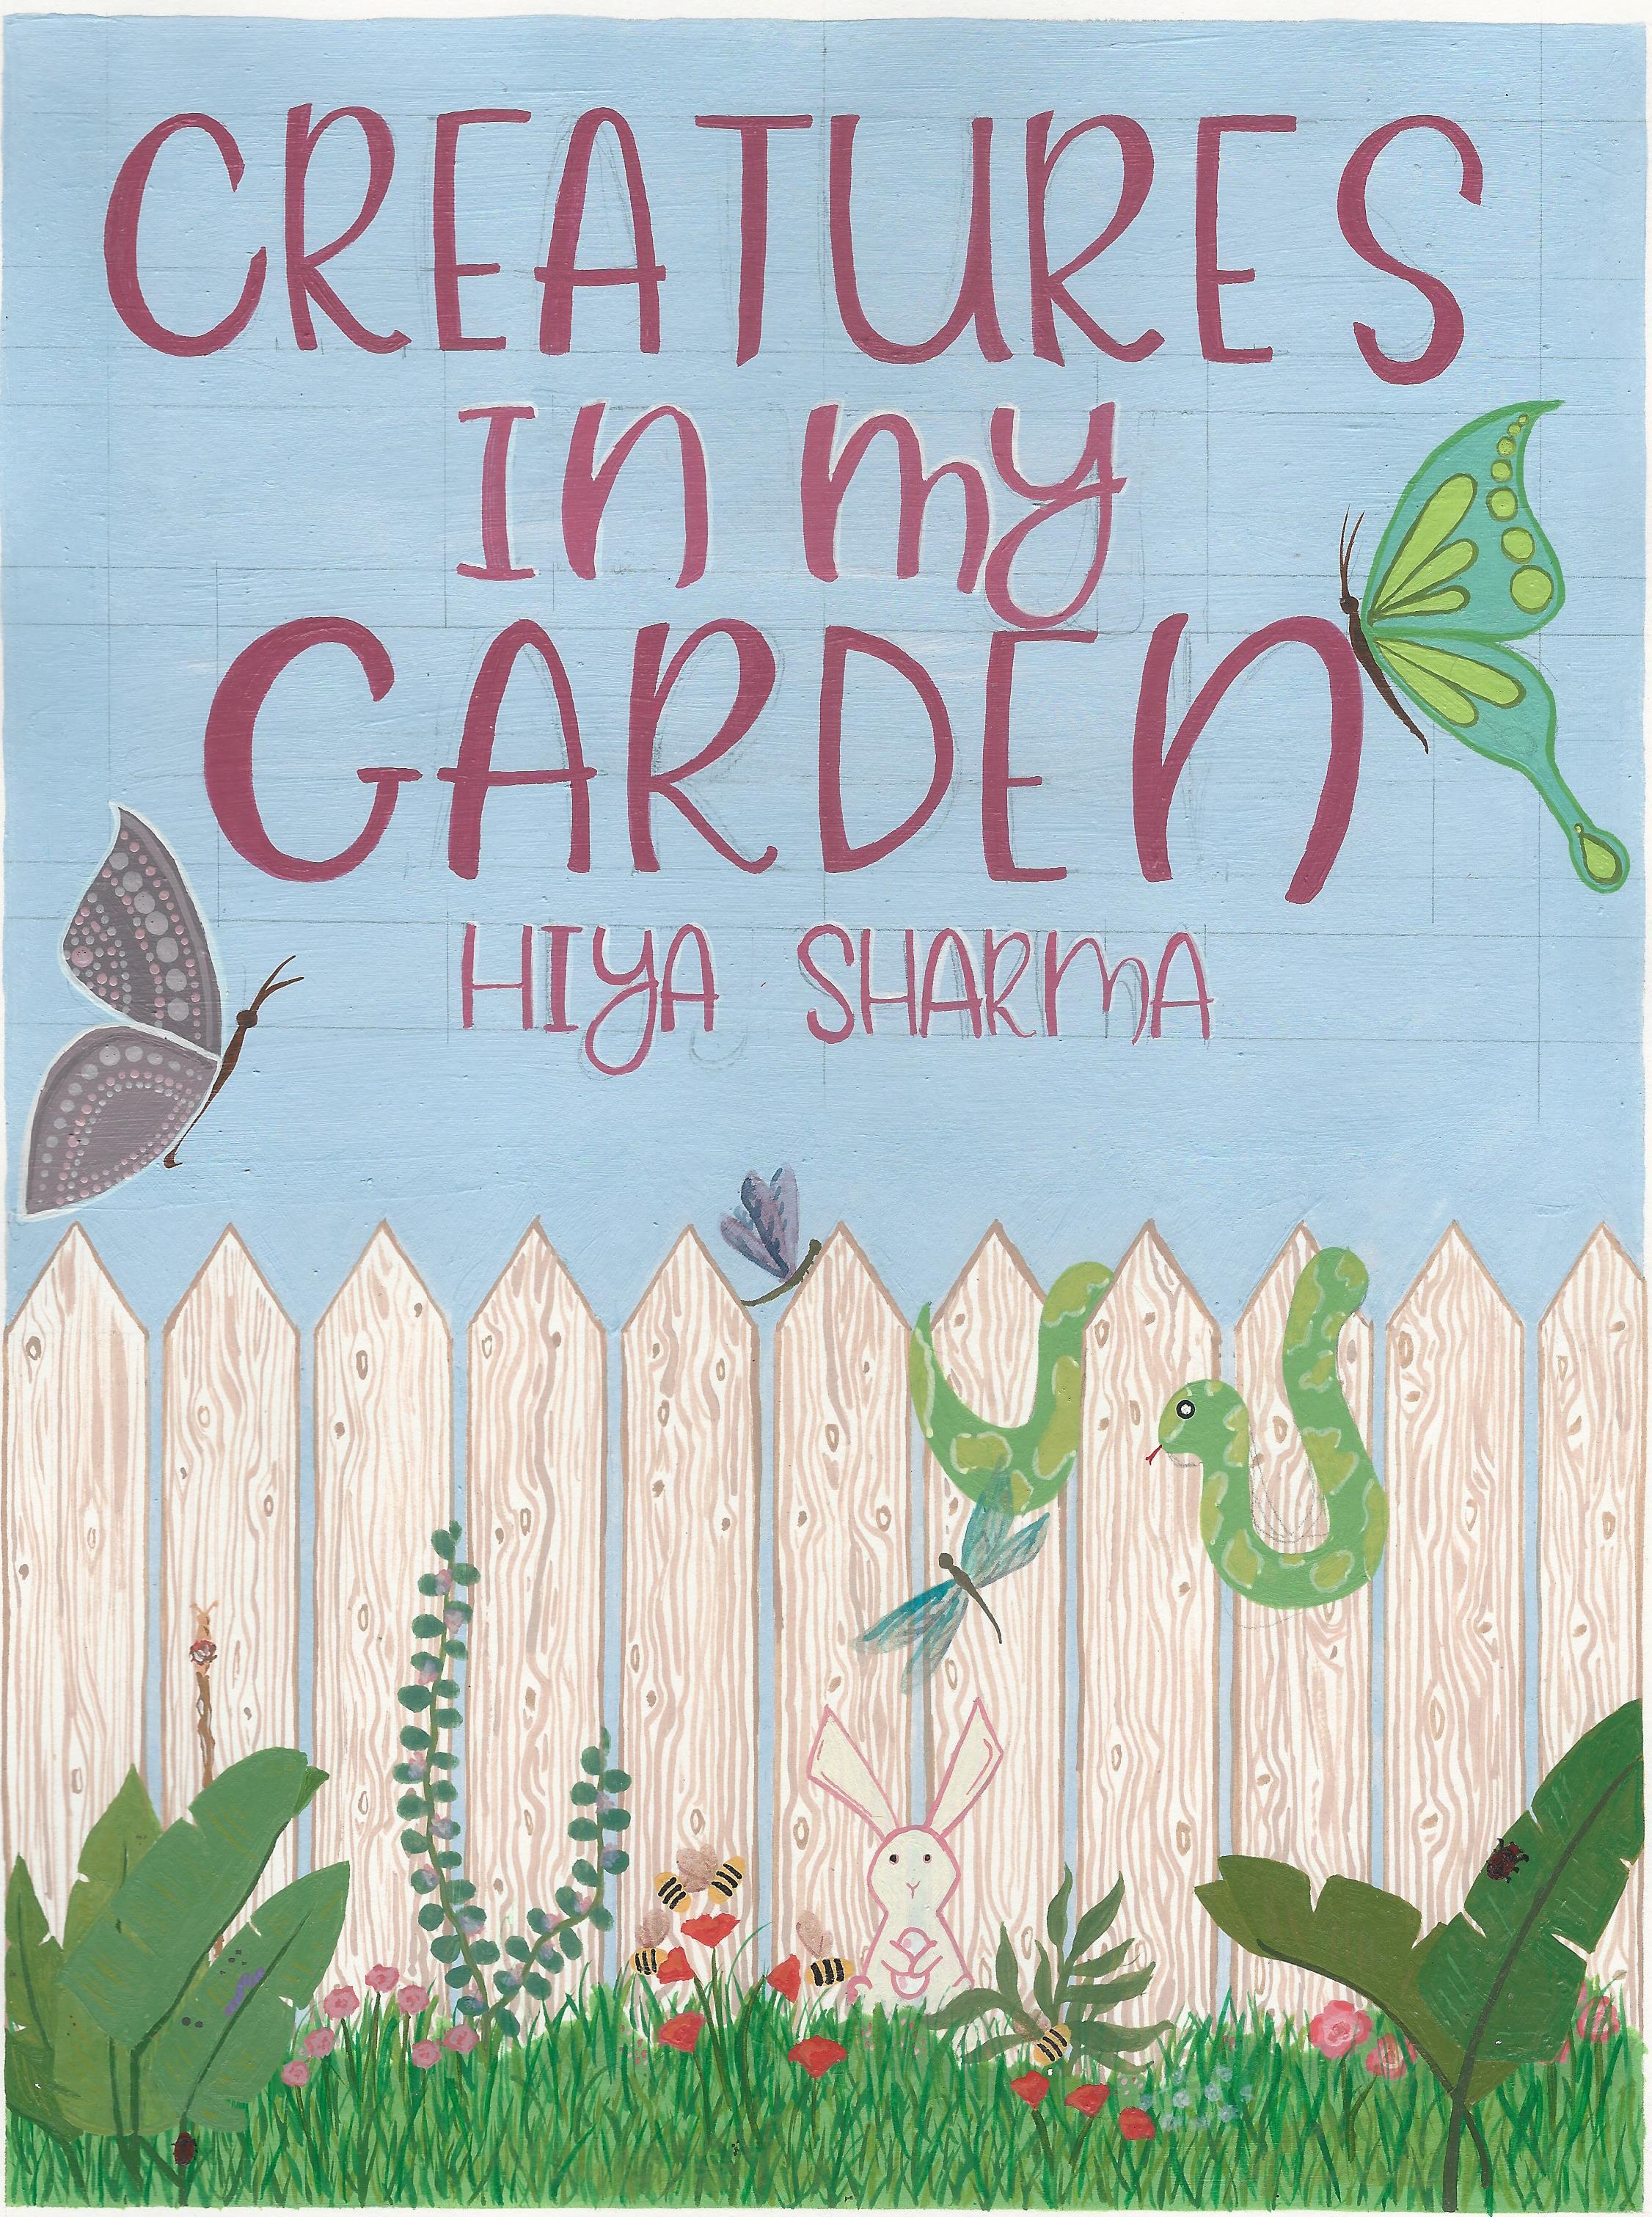 CREATURES
In my
GARDEn
HIyA SHARmA